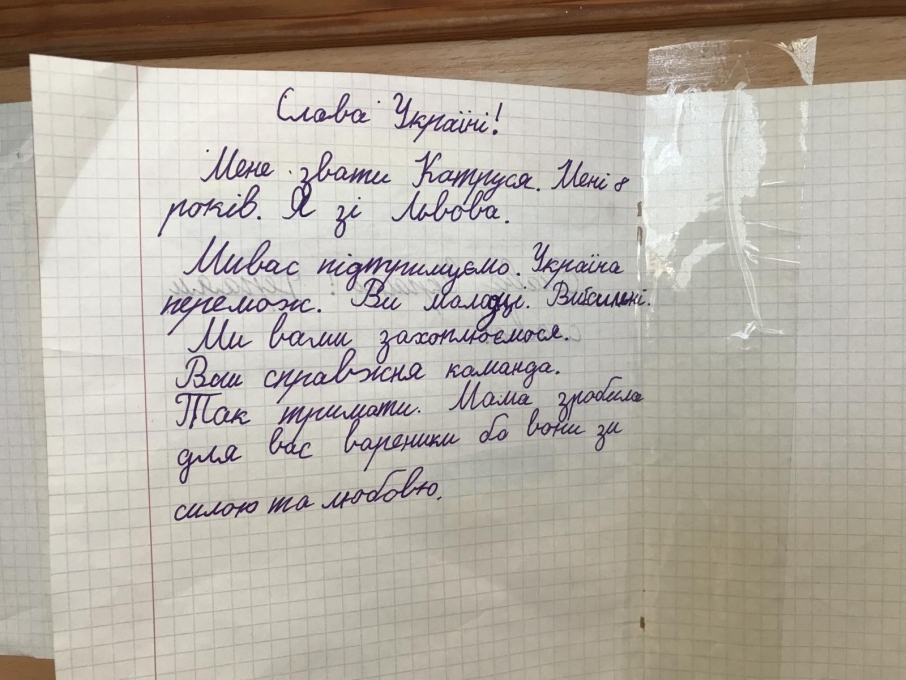 Слава Україні!
Мене звати Катруся. Мені 8
років. Я зі Львова.
Ми вас підтримуємо. Україна
перемож. Ви молодці. Ви сильні.
Ми вами захоплюємося.
Ви справжня команда.
Так тримати. Мама зробила
для вас вареники бо вони зи
силою та любовю.